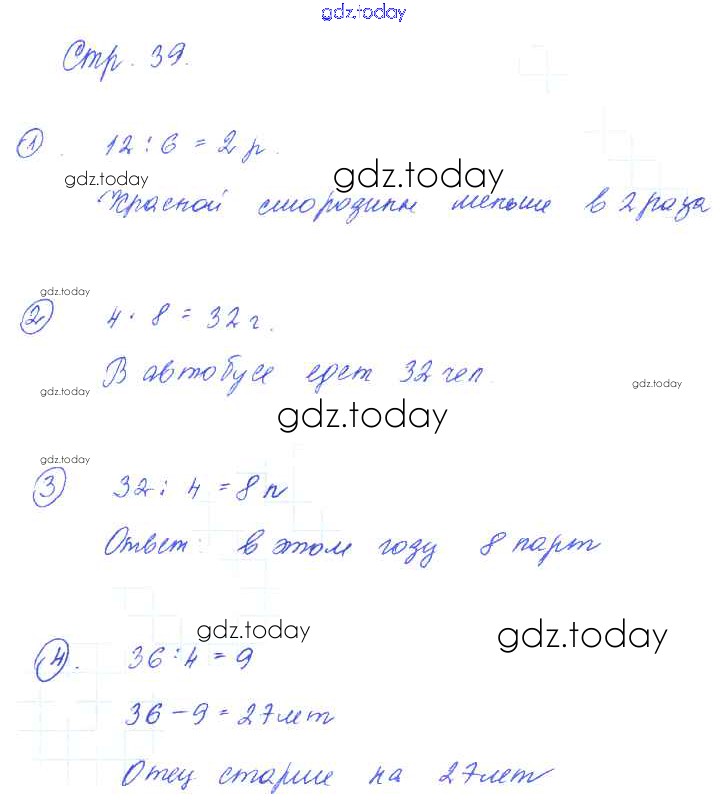 gdz.today
Стр. 39.
1. 12 : 6 = 2 р.
gdz.today gdz.today
Красной смородины меньше в 2 раза
gdz.today
2 4 · 8 = 32 г.
В автобусе едет 32 чел.
gdz.today gdz.today
gdz.today
gdz.today
3 32 : 4 = 8 п
Ответ: в этом году 8 парт
gdz.today gdz.today
4. 36 : 4 = 9
36 - 9 = 27 лет
Отец старше на 27 лет